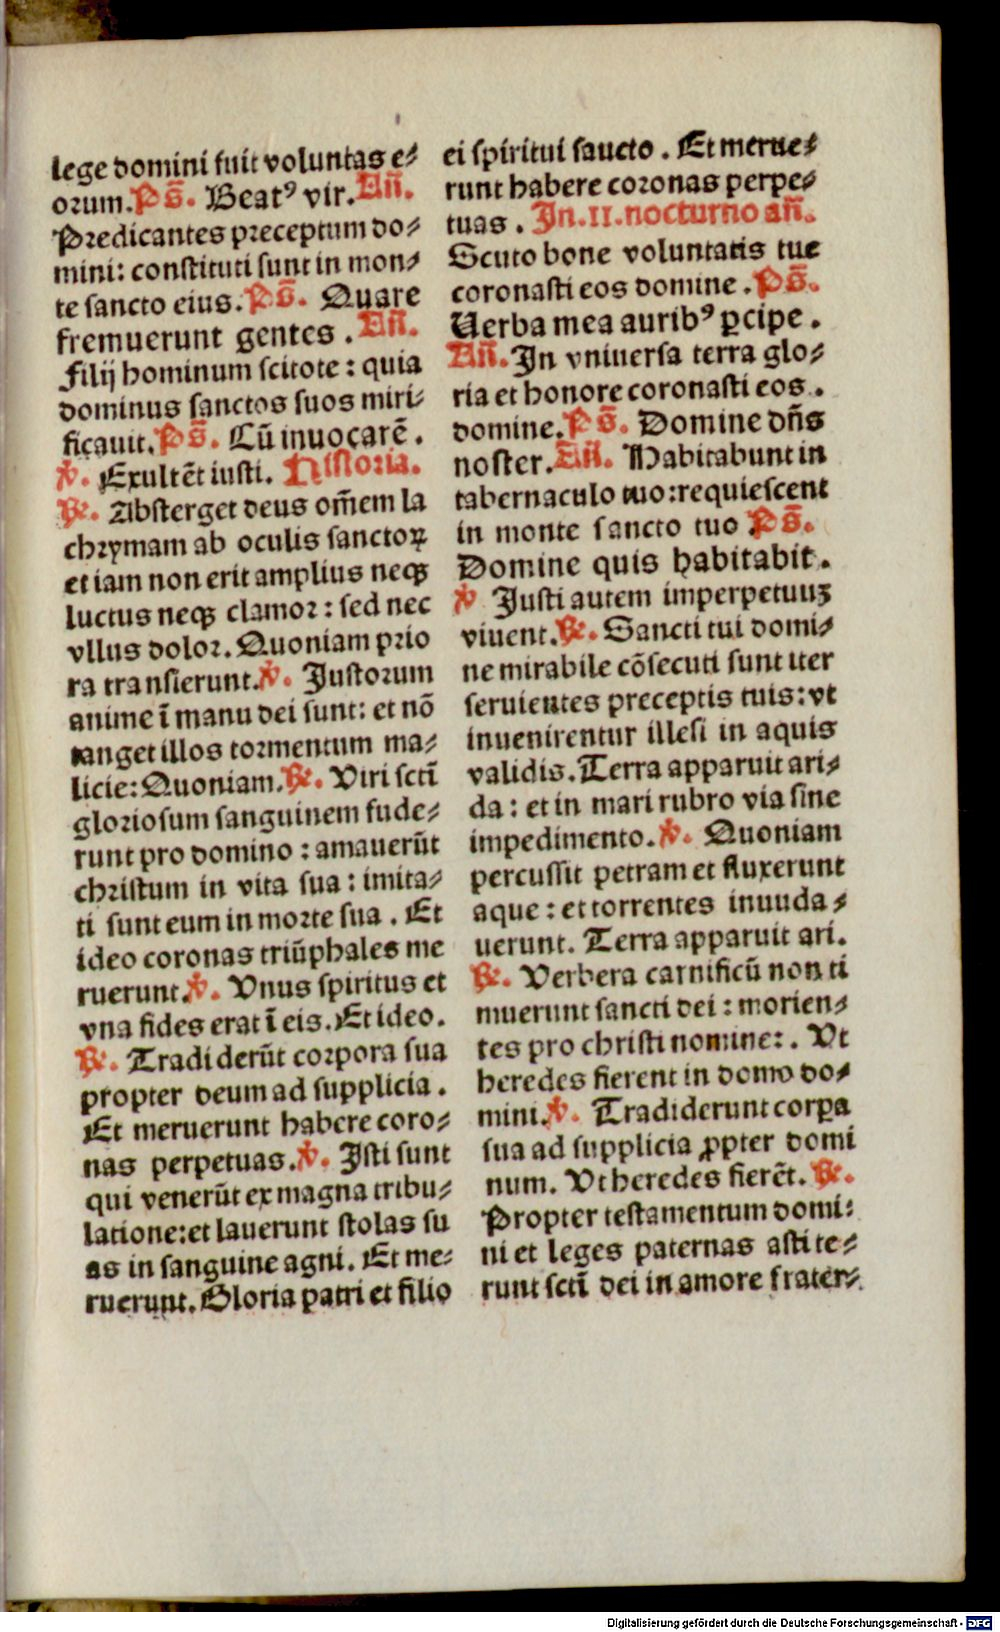 lege domini fuit voluntas e⸗
orum. Ps̄. Beatꝰ vir. Añ.
Predicantes preceptum do⸗
mini: constituti sunt in mon⸗
te sancto eius. Ps̄. Quare
fremuerunt gentes. Añ.
Filij hominum scitote: quia
dominus sanctos suos miri⸗
ficauit. Ps̄. Cū inuocarē.
℣. Exultēt iusti. Historia.
℟. Absterget deus om̄em la
chrymam ab oculis sanctoꝝ
et iam non erit amplius neqꝫ
luctus neqꝫ clamor: sed nec
vllus dolor. Quoniam prio
ra transierunt. ℣. Justorum
anime ī manu dei sunt: et nō
tanget illos tormentum ma⸗
licie: Quoniam. ℟. Viri sctī
gloriosum sanguinem fude⸗
runt pro domino: amauerūt
christum in vita sua: imita⸗
ti sunt eum in morte sua. Et
ideo coronas triūphales me
ruerunt. ℣. Vnus spiritus et
vna fides erat ī eis. Et ideo.
℟. Tradiderūt corpora sua
propter deum ad supplicia.
Et meruerunt habere coro⸗
nas perpetuas. ℣. Isti sunt
qui venerūt ex magna tribu⸗
latione: et lauerunt stolas su
as in sanguine agni. Et me⸗
ruerunt. Gloria patri et filio
ei spiritui saucto. Et merue⸗
runt habere coronas perpe⸗
tuas. In. II. nocturno añ.
Scuto bone voluntatis tue
coronasti eos domine. Ps̄.
Uerba mea auribꝰ ꝑcipe.
Añ. In vniuersa terra glo⸗
ria et honore coronasti eos.
domine. Ps̄. Domine dñs
noster. Añ. Habitabunt in
tabernaculo tuo: requiescent
in monte sancto tuo. Ps̄.
Domine quis habitabit.
℣ Justi autem imperpetuuꝫ
viuent. ℟. Sancti tui domi⸗
ne mirabile cōsecuti sunt iter
seruientes preceptis tuis: vt
inuenirentur illesi in aquis
validis. Terra apparuit ari⸗
da: et in mari rubro via sine
impedimento. ℣. Quoniam
percussit petram et fluxerunt
aque: et torrentes inuuda⸗
uerunt. Terra apparuit ari.
℟. Verbera carnificū non ti
muerunt sancti dei: morien⸗
tes pro christi nomine:. Vt
heredes fierent in domo do⸗
mini. ℣. Tradiderunt corꝑa
sua ad supplicia ꝓpter domi
num. Vt heredes fierēt. ℟.
Propter testamentum domi⸗
ni et leges paternas astite⸗
runt sctī dei in amore frater⸗
Digitalisierung gefördert durch die Deutsche Forschungsgemeinschaft - DFG